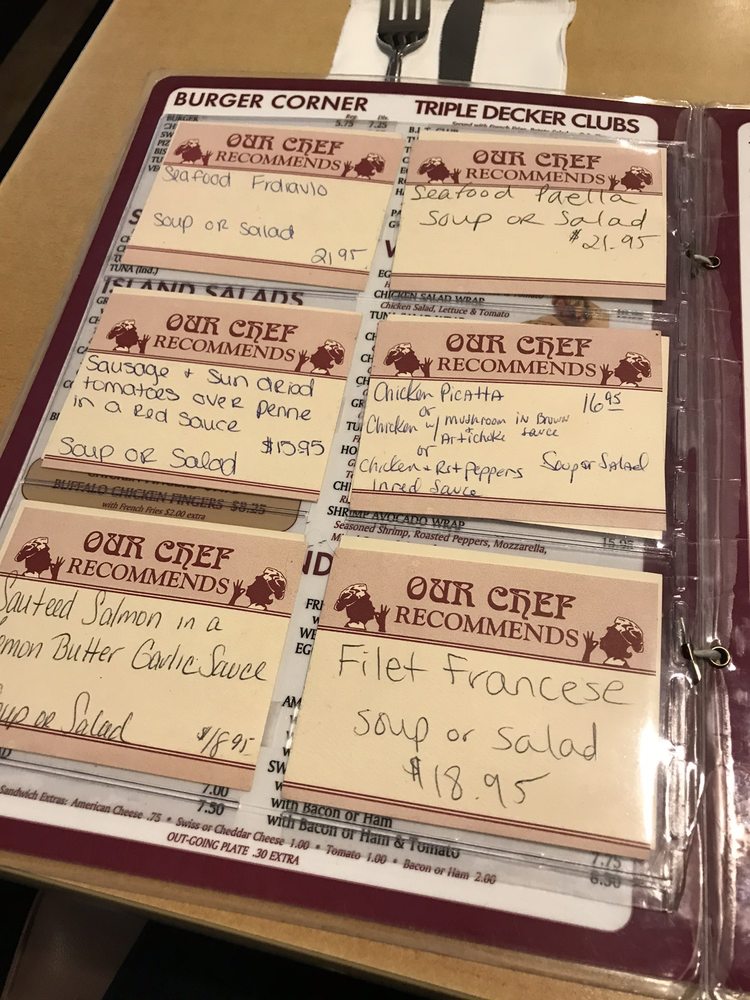 BURGER CORNER
BURGER
5.75 7.25
TRIPLE DECKER CLUBS
OUR CHEF
RECOMMENDS
Seafood Fradiavlo
Soup OR Salad
21.95
OUR CHEF
RECOMMENDS
Seafood Paella
Soup OR Salad
$21.95
TUNA (Ind.)
ISLAND SALADS
CHICKEN SALAD WRAP
Chicken Salad, Lettuce & Tomato
OUR CHEF
RECOMMENDS
Sausage + Sun dried
tomatoes over penne
in a Red sauce
Soup OR Salad $15.95
OUR CHEF
RECOMMENDS
Chicken Picatta 16.95
or
Chicken w/ Mushroom in Brown
+ Artichoke sauce
or
Chicken + Rst Peppers Soup or Salad
in red sauce
BUFFALO CHICKEN FINGERS $8.25
with French Fries $2.00 extra
SHRIMP AVOCADO WRAP
Seasoned Shrimp, Roasted Peppers, Mozzarella,
15.95
OUR CHEF
RECOMMENDS
Sauteed Salmon in a
emon Butter Garlic Sauce
oup OR Salad $18.95
OUR CHEF
RECOMMENDS
Filet Francese
Soup or Salad
$18.95
7.00
7.50
with Bacon or Ham
with Bacon or Ham & Tomato
7.75
8.50
Sandwich Extras: American Cheese .75 * Swiss or Cheddar Cheese 1.00 * Tomato 1.00 * Bacon or Ham 2.00
OUT-GOING PLATE .30 EXTRA